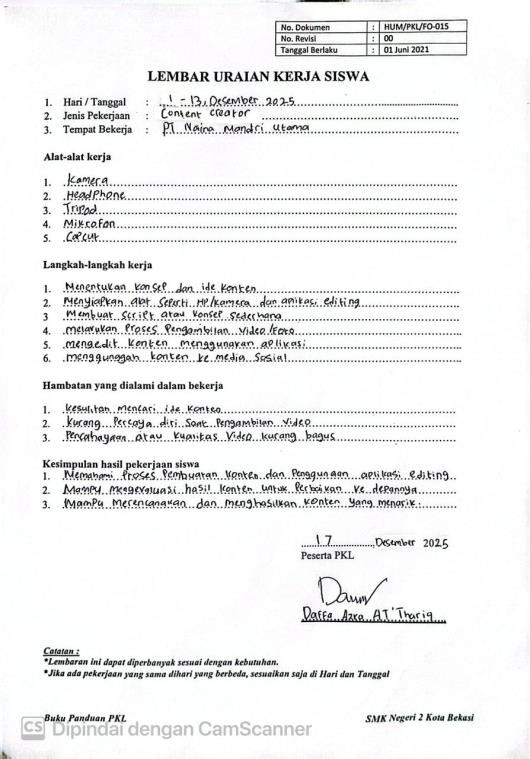 No. Dokumen : HUM/PKL/FO-015
No. Revisi : 00
Tanggal Berlaku : 01 Juni 2021
LEMBAR URAIAN KERJA SISWA
1. Hari / Tanggal : 1 - 13, Desember 2025
2. Jenis Pekerjaan : Content creator
3. Tempat Bekerja : PT Naina Mandiri Utama
Alat-alat kerja
1. Kamera
2. HeadPhone
3. Tripod
4. Mikrofon
5. CapCut
Langkah-langkah kerja
1. Menentukan konsep dan ide konten
2. Menyiapkan alat seperti HP/kamera dan aplikasi editing
3 Membuat script atau konsep sederhana
4. melakukan Proses Pengambilan video/foto
5. mengedit konten menggunakan aplikasi
6. mengunggah konten ke media sosial
Hambatan yang dialami dalam bekerja
1. kesulitan mencari ide konten
2. kurang Percaya diri saat Pengambilan video
3. Pencahayaan atau kualitas video kurang bagus
Kesimpulan hasil pekerjaan siswa
1. Memahami Proses Pembuatan konten dan Penggunaan aplikasi editing
2. Mampu mengevaluasi hasil konten untuk Perbaikan ke depannya
3. Mampu Merencanakan dan menghasilkan konten yang menarik.
17, Desember 2025
Peserta PKL
Daffa Azka AT Thariq
Catatan :
*Lembaran ini dapat diperbanyak sesuai dengan kebutuhan.
*Jika ada pekerjaan yang sama dihari yang berbeda, sesuaikan saja di Hari dan Tanggal
Buku Panduan PKL SMK Negeri 2 Kota Bekasi
CS Dipindai dengan CamScanner